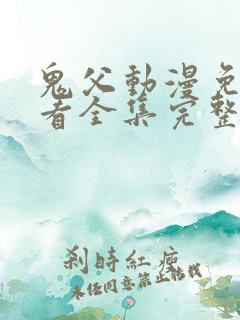 鬼父動漫免
看全集完整
刹時紅瘦
未经同意禁止转载